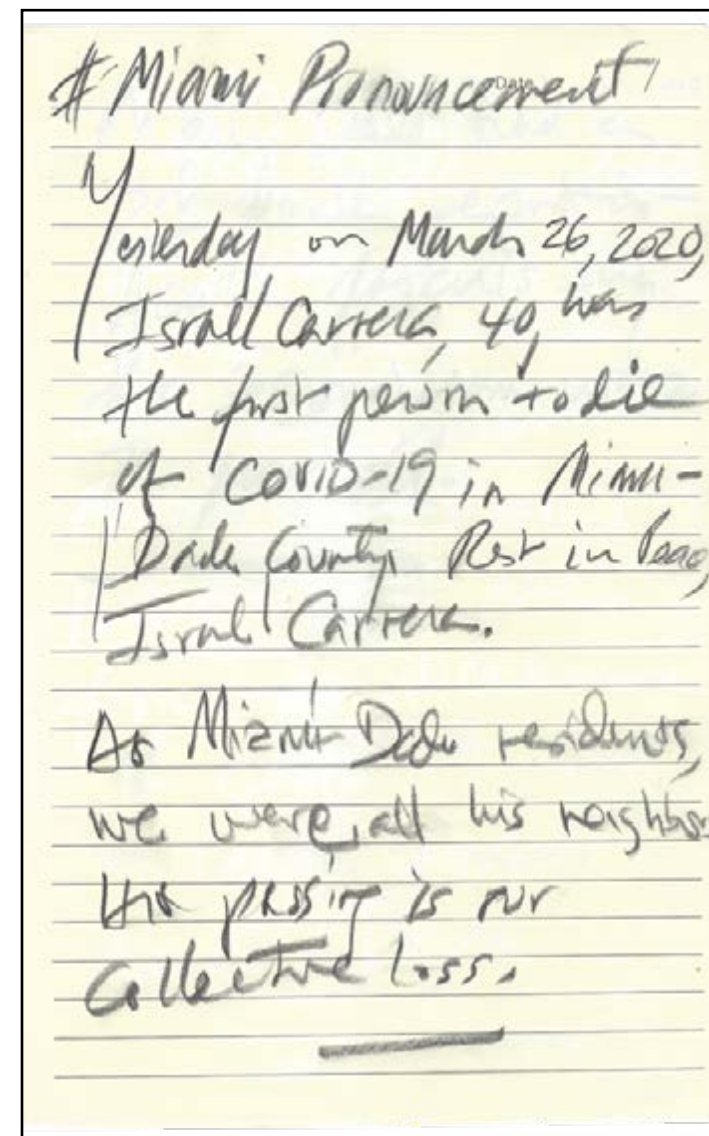 # Miami Pronouncement
Date
Yesterday on March 26, 2020,
Israel Carrera, 40, was
the first person to die
of COVID-19 in Miami-
Dade County. Rest in Peace,
Israel Carrera.
As Miami-Dade residents,
we were all his neighbors
His passing is our
Collective loss.